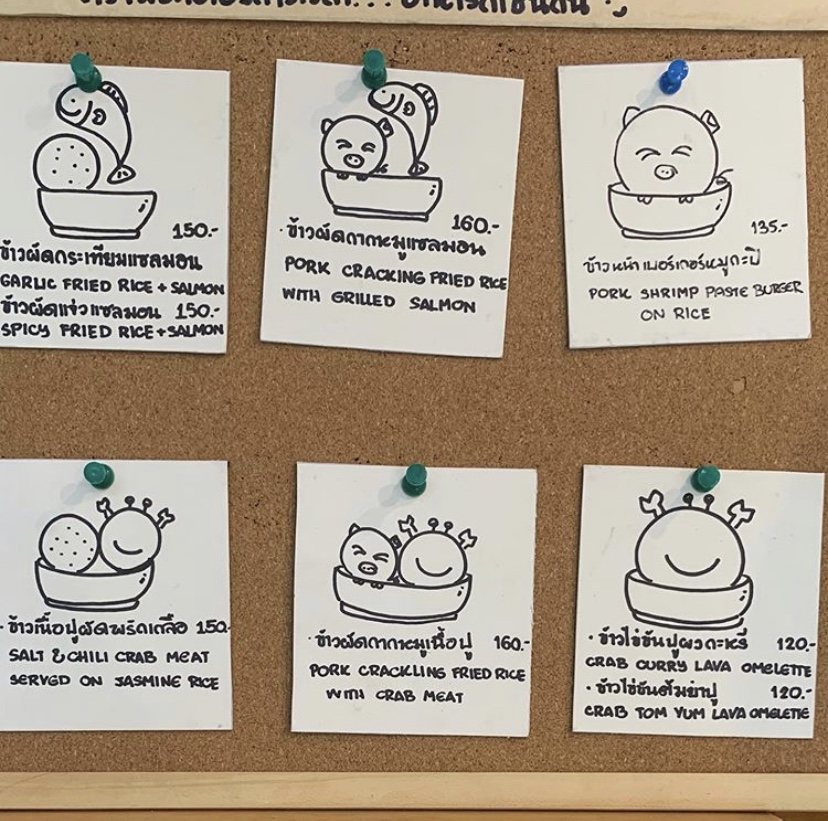 150.-
ข้าวผัดกระเทียมแซลมอน
GARLIC FRIED RICE + SALMON
ข้าวผัดแจ่วแซลมอน 150.-
SPICY FRIED RICE + SALMON
160.-
· ข้าวผัดกากหมูแซลมอน
PORK CRACKING FRIED RICE
WITH GRILLED SALMON
135.-
ข้าวหน้าเบอร์เกอร์หมูกะปิ
PORK SHRIMP PASTE BURGER
ON RICE
· ข้าวเนื้อปูผัดพริกเกลือ 150.-
SALT & CHILI CRAB MEAT
SERVED ON JASMINE RICE
· ข้าวผัดกากหมูเนื้อปู 160.-
PORK CRACKLING FRIED RICE
WITH CRAB MEAT
· ข้าวไข่ข้นปูผงกะหรี่ 120.-
CRAB CURRY LAVA OMELETTE
· ข้าวไข่ข้นต้มยำปู 120.-
CRAB TOM YUM LAVA OMELETTE